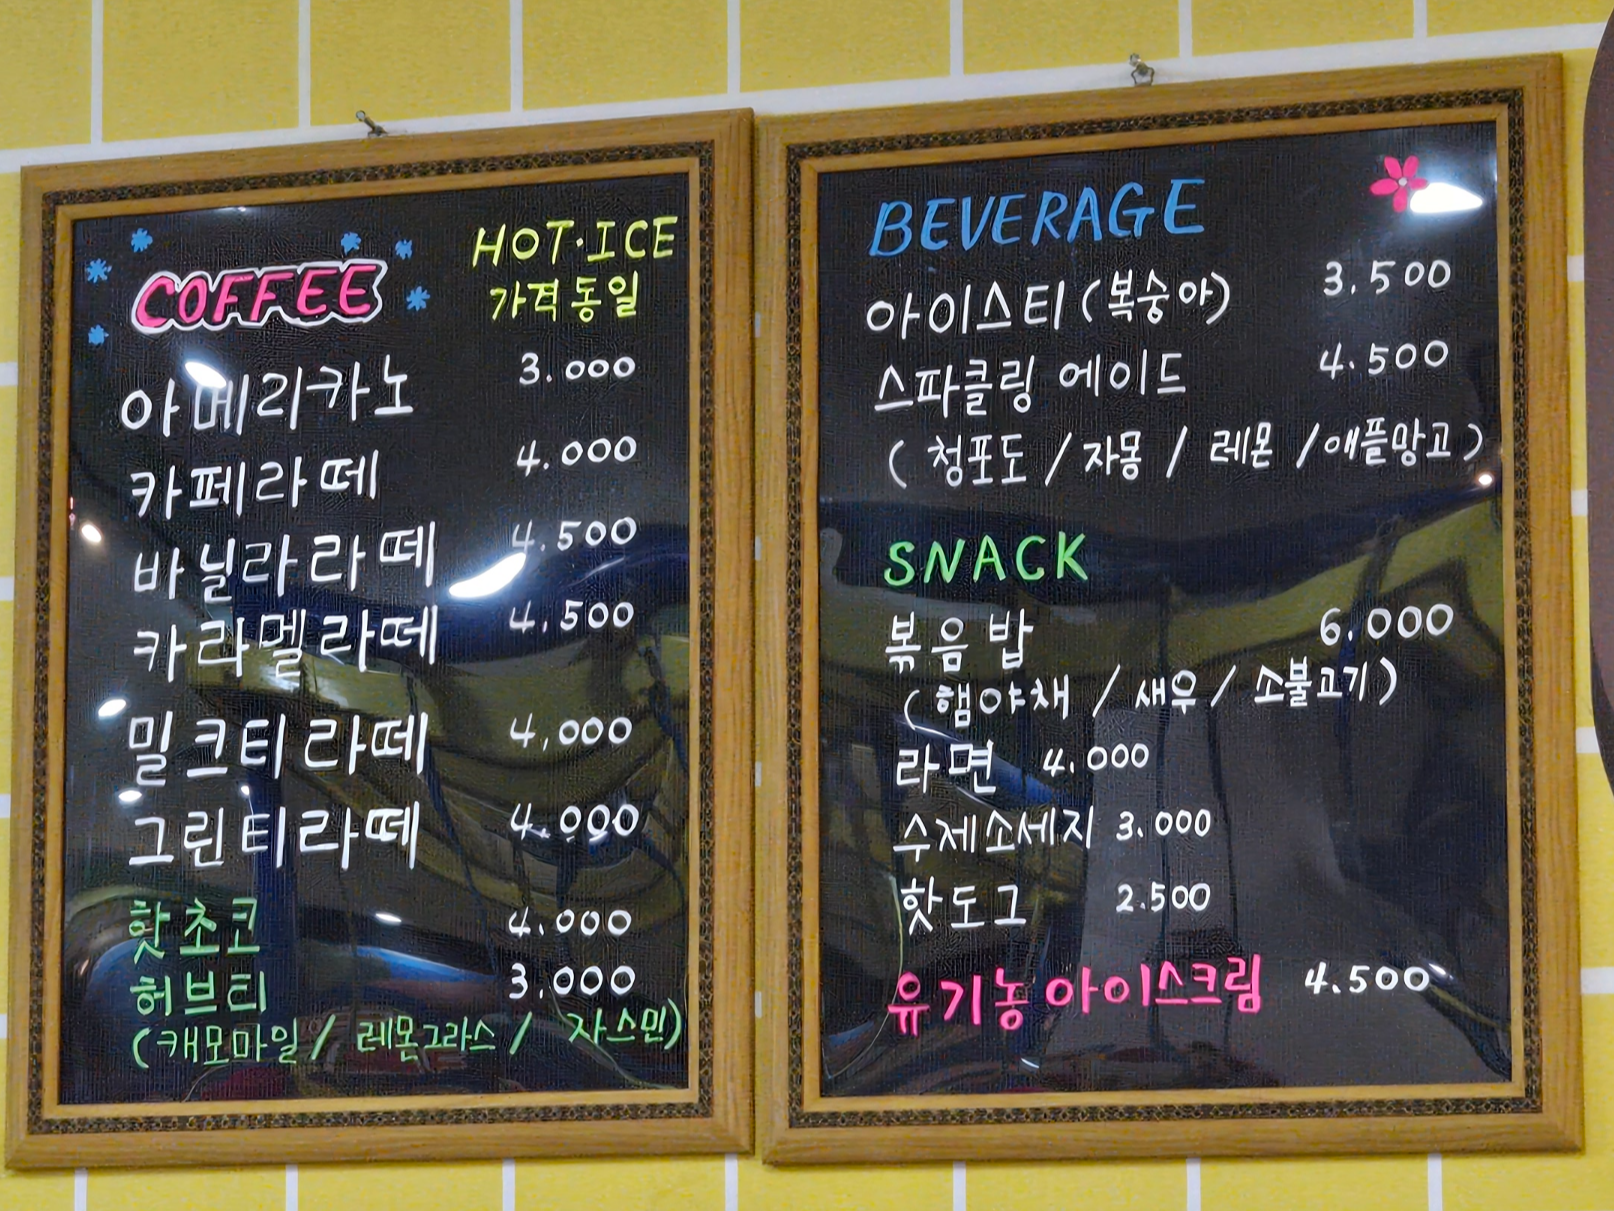 COFFEE
HOT·ICE
가격동일
아메리카노 3.000
카페라떼 4.000
바닐라라떼 4.500
카라멜라떼 4.500
밀크티라떼 4,000
그린티라떼 4.000
핫초코 4.000
허브티 3.000
(캐모마일 / 레몬그라스 / 자스민)
BEVERAGE
아이스티(복숭아) 3.500
스파클링 에이드 4.500
( 청포도 / 자몽 / 레몬 / 애플망고 )
SNACK
볶음밥 6.000
( 햄야채 / 새우 / 소불고기 )
라면 4.000
수제소세지 3.000
핫도그 2.500
유기농아이스크림 4.500